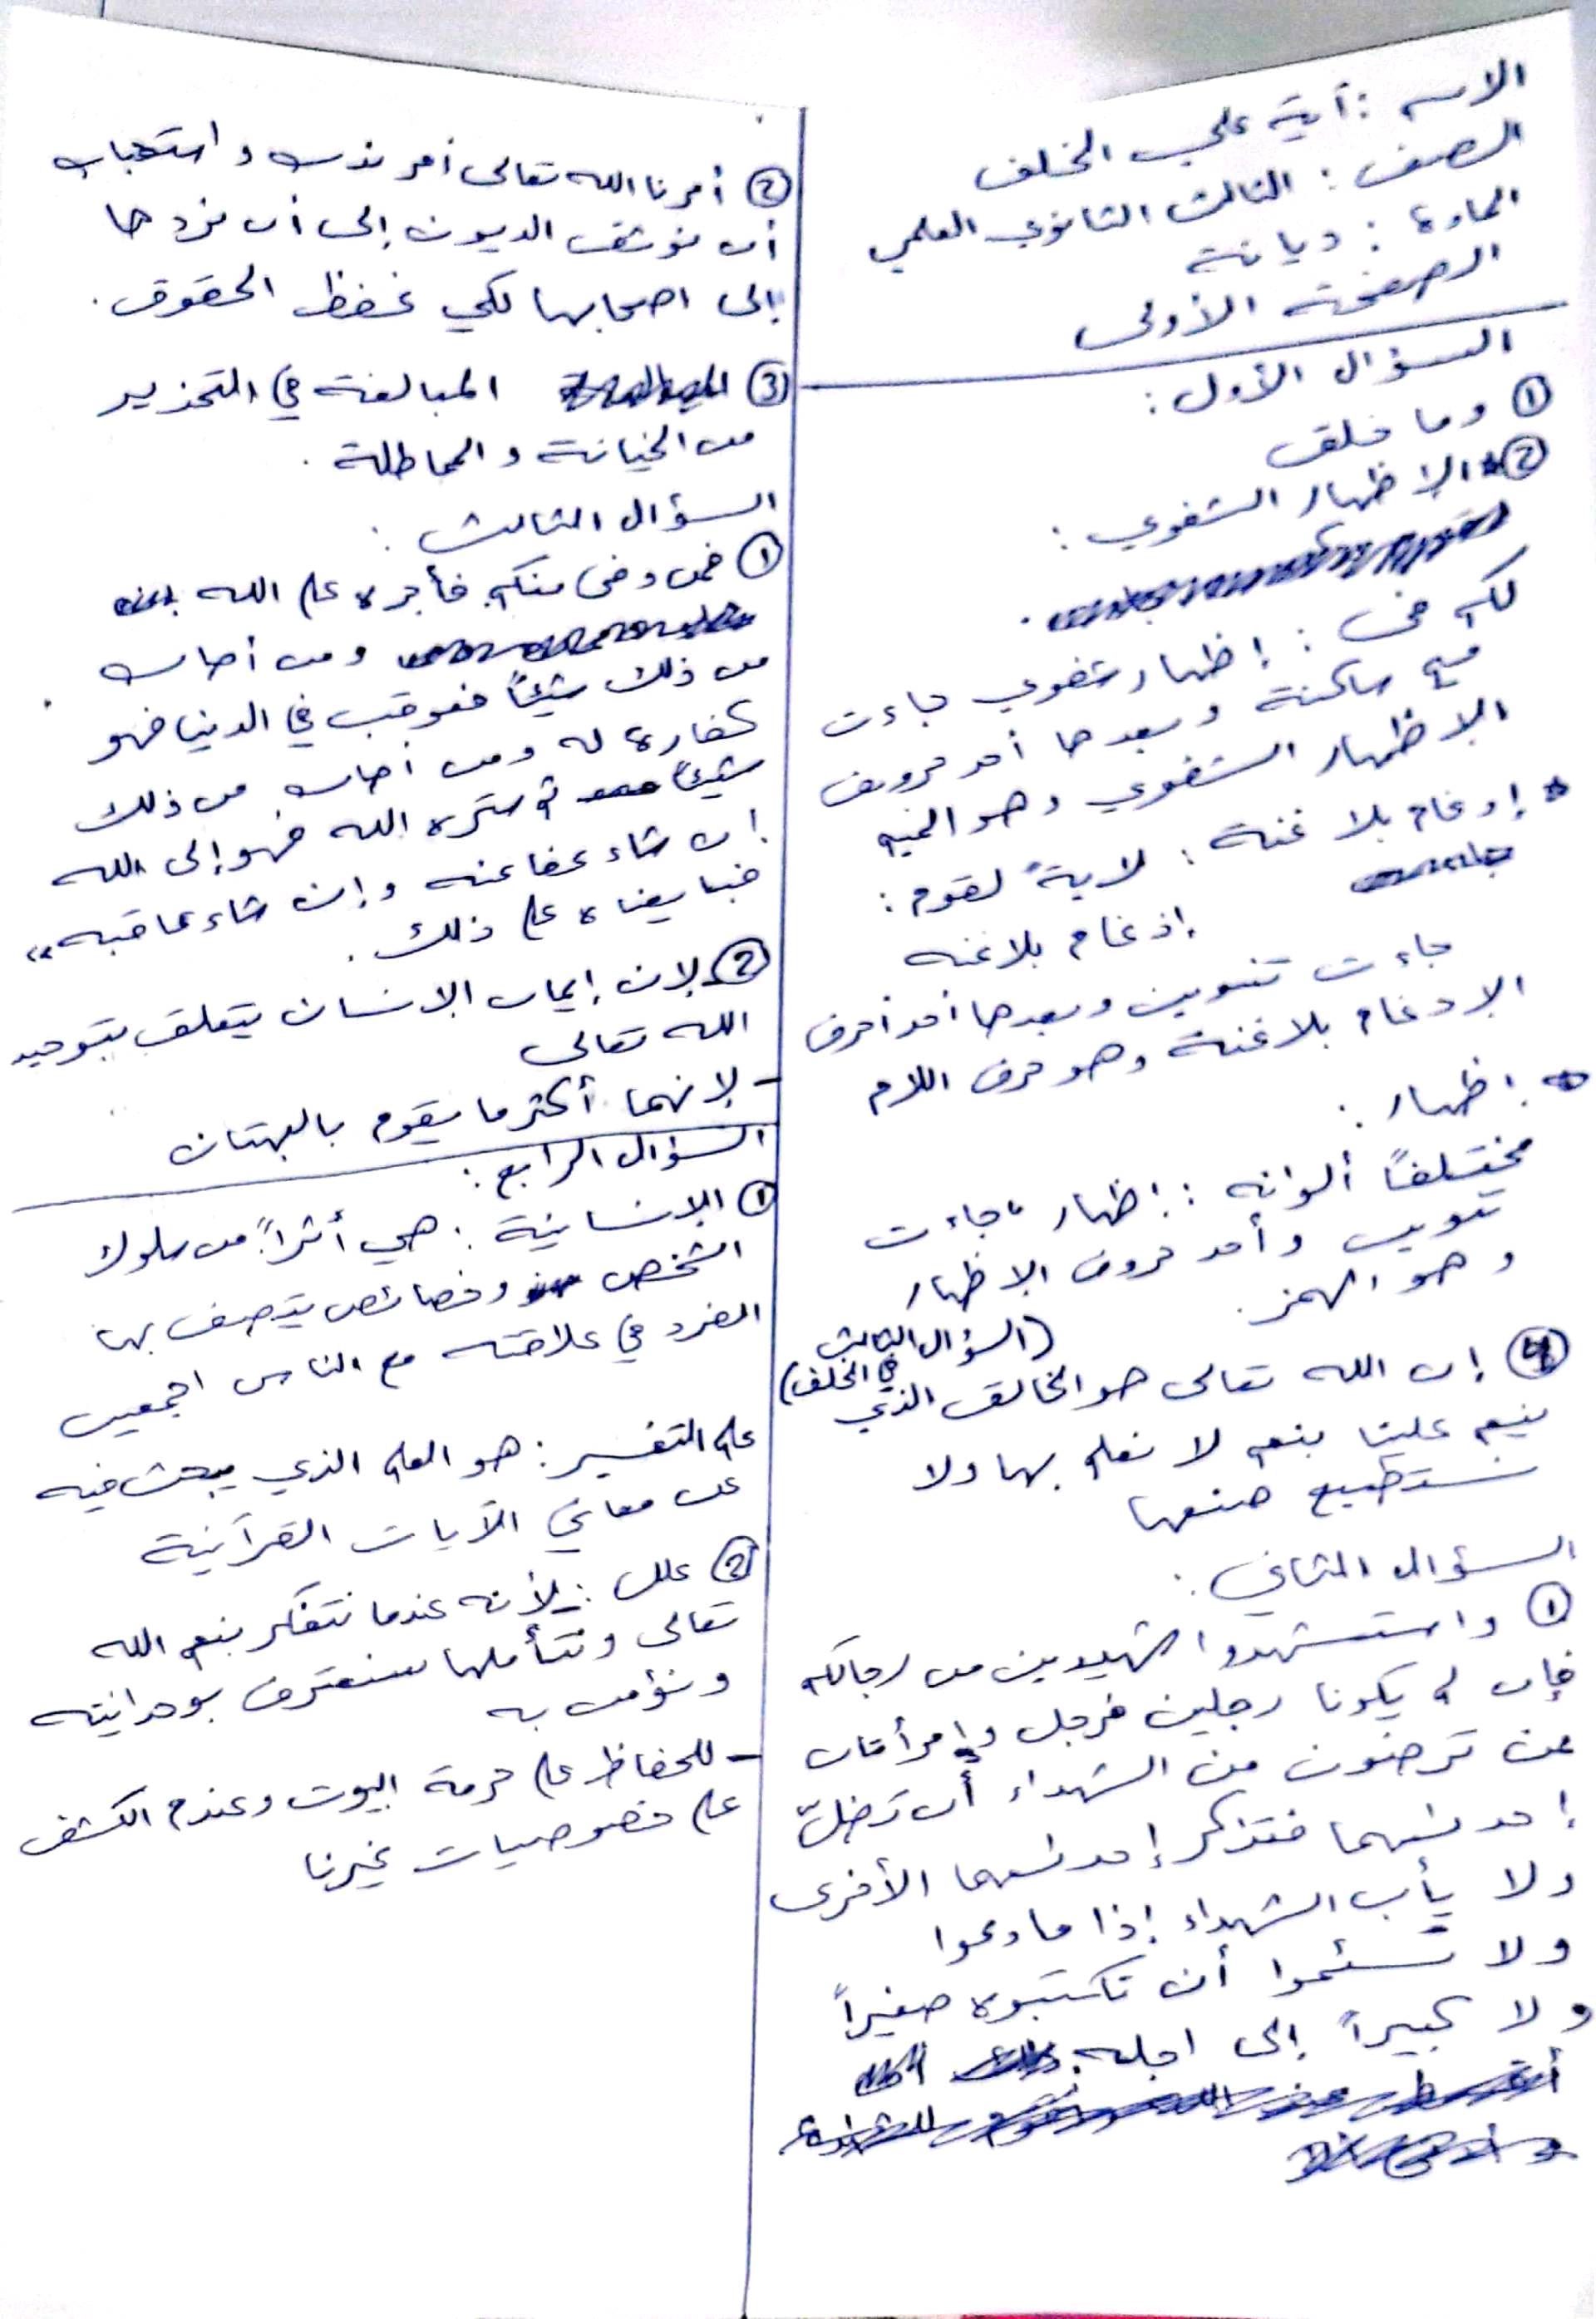 الاسم : آية علي الخلف
الصف : الثالث الثانوي العلمي
المادة : ديانة
الصفحة الأولى
السؤال الأول :
① وما خلق
② الإظهار الشفوي :
لكم في : إظهار شفوي جاءت
ميم ساكنة وبعدها أحد حروف
الإظهار الشفوي وهو الميم
* إدغام بلا غنة : لاية لقوم :
إدغام بلاغنه
جاءت تنوين وبعدها أحد أحرف
الإدغام بلاغنة وهو حرف اللام
* إظهار :
مختلفاً ألوانه : إظهار ، جاءت
تنوين وأحد حروف الإظهار
وهو الهمز
(السؤال الثالث
في الخلف)
④ إن الله تعالى هو الخالق الذي
ينعم علينا بنعم لا نعلم بها ولا
نستطيع صنعها
السؤال الثاني :
① واستشهدوا شهيدين من رجالكم
فإن لم يكونا رجلين فرجل وامرأتان
ممن ترضون من الشهداء أن تضلّ
إحدىهما فتذكر إحدىهما الأخرى
ولا يأب الشهداء إذا ما دعوا
ولا تسئموا أن تكتبوه صغيراً
ولا كبيراً إلى اجله
② أمرنا الله تعالى أمر ندب واستحباب
أن نوثق الديون إلى أن نردها
إلى اصحابها لكي نحفظ الحقوق .
③ المبالغة في التحذير
من الخيانة والمماطلة .
السؤال الثالث :
① فمن وفى منكم فأجره على الله
ومن أصاب
من ذلك شيئاً فعوقب في الدنيا فهو
كفارة له ومن أصاب من ذلك
شيئاً ثم ستره الله فهو إلى الله
إن شاء عفا عنه وإن شاء عاقبه"
فبايعناه على ذلك .
② لإن إيمان الإنسان يتعلق بتوحيد
الله تعالى
- لإنهما أكثر ما يقوم بالبهتان
السؤال الرابع :
① الإنسانية : هي أثراً من سلوك
الشخص وخصائص يتصف بها
الفرد في علاقته مع الناس اجمعين
علم التفسير : هو العلم الذي يبحث فيه
عن معاني الآيات القرآنية
② علل : لأنه عندما نتفكر بنعم الله
تعالى ونتأملها سنعترف بوحدانيته
ونؤمن به
- للحفاظ على حرمة البيوت وعندم الكشف
على خصوصيات غيرنا